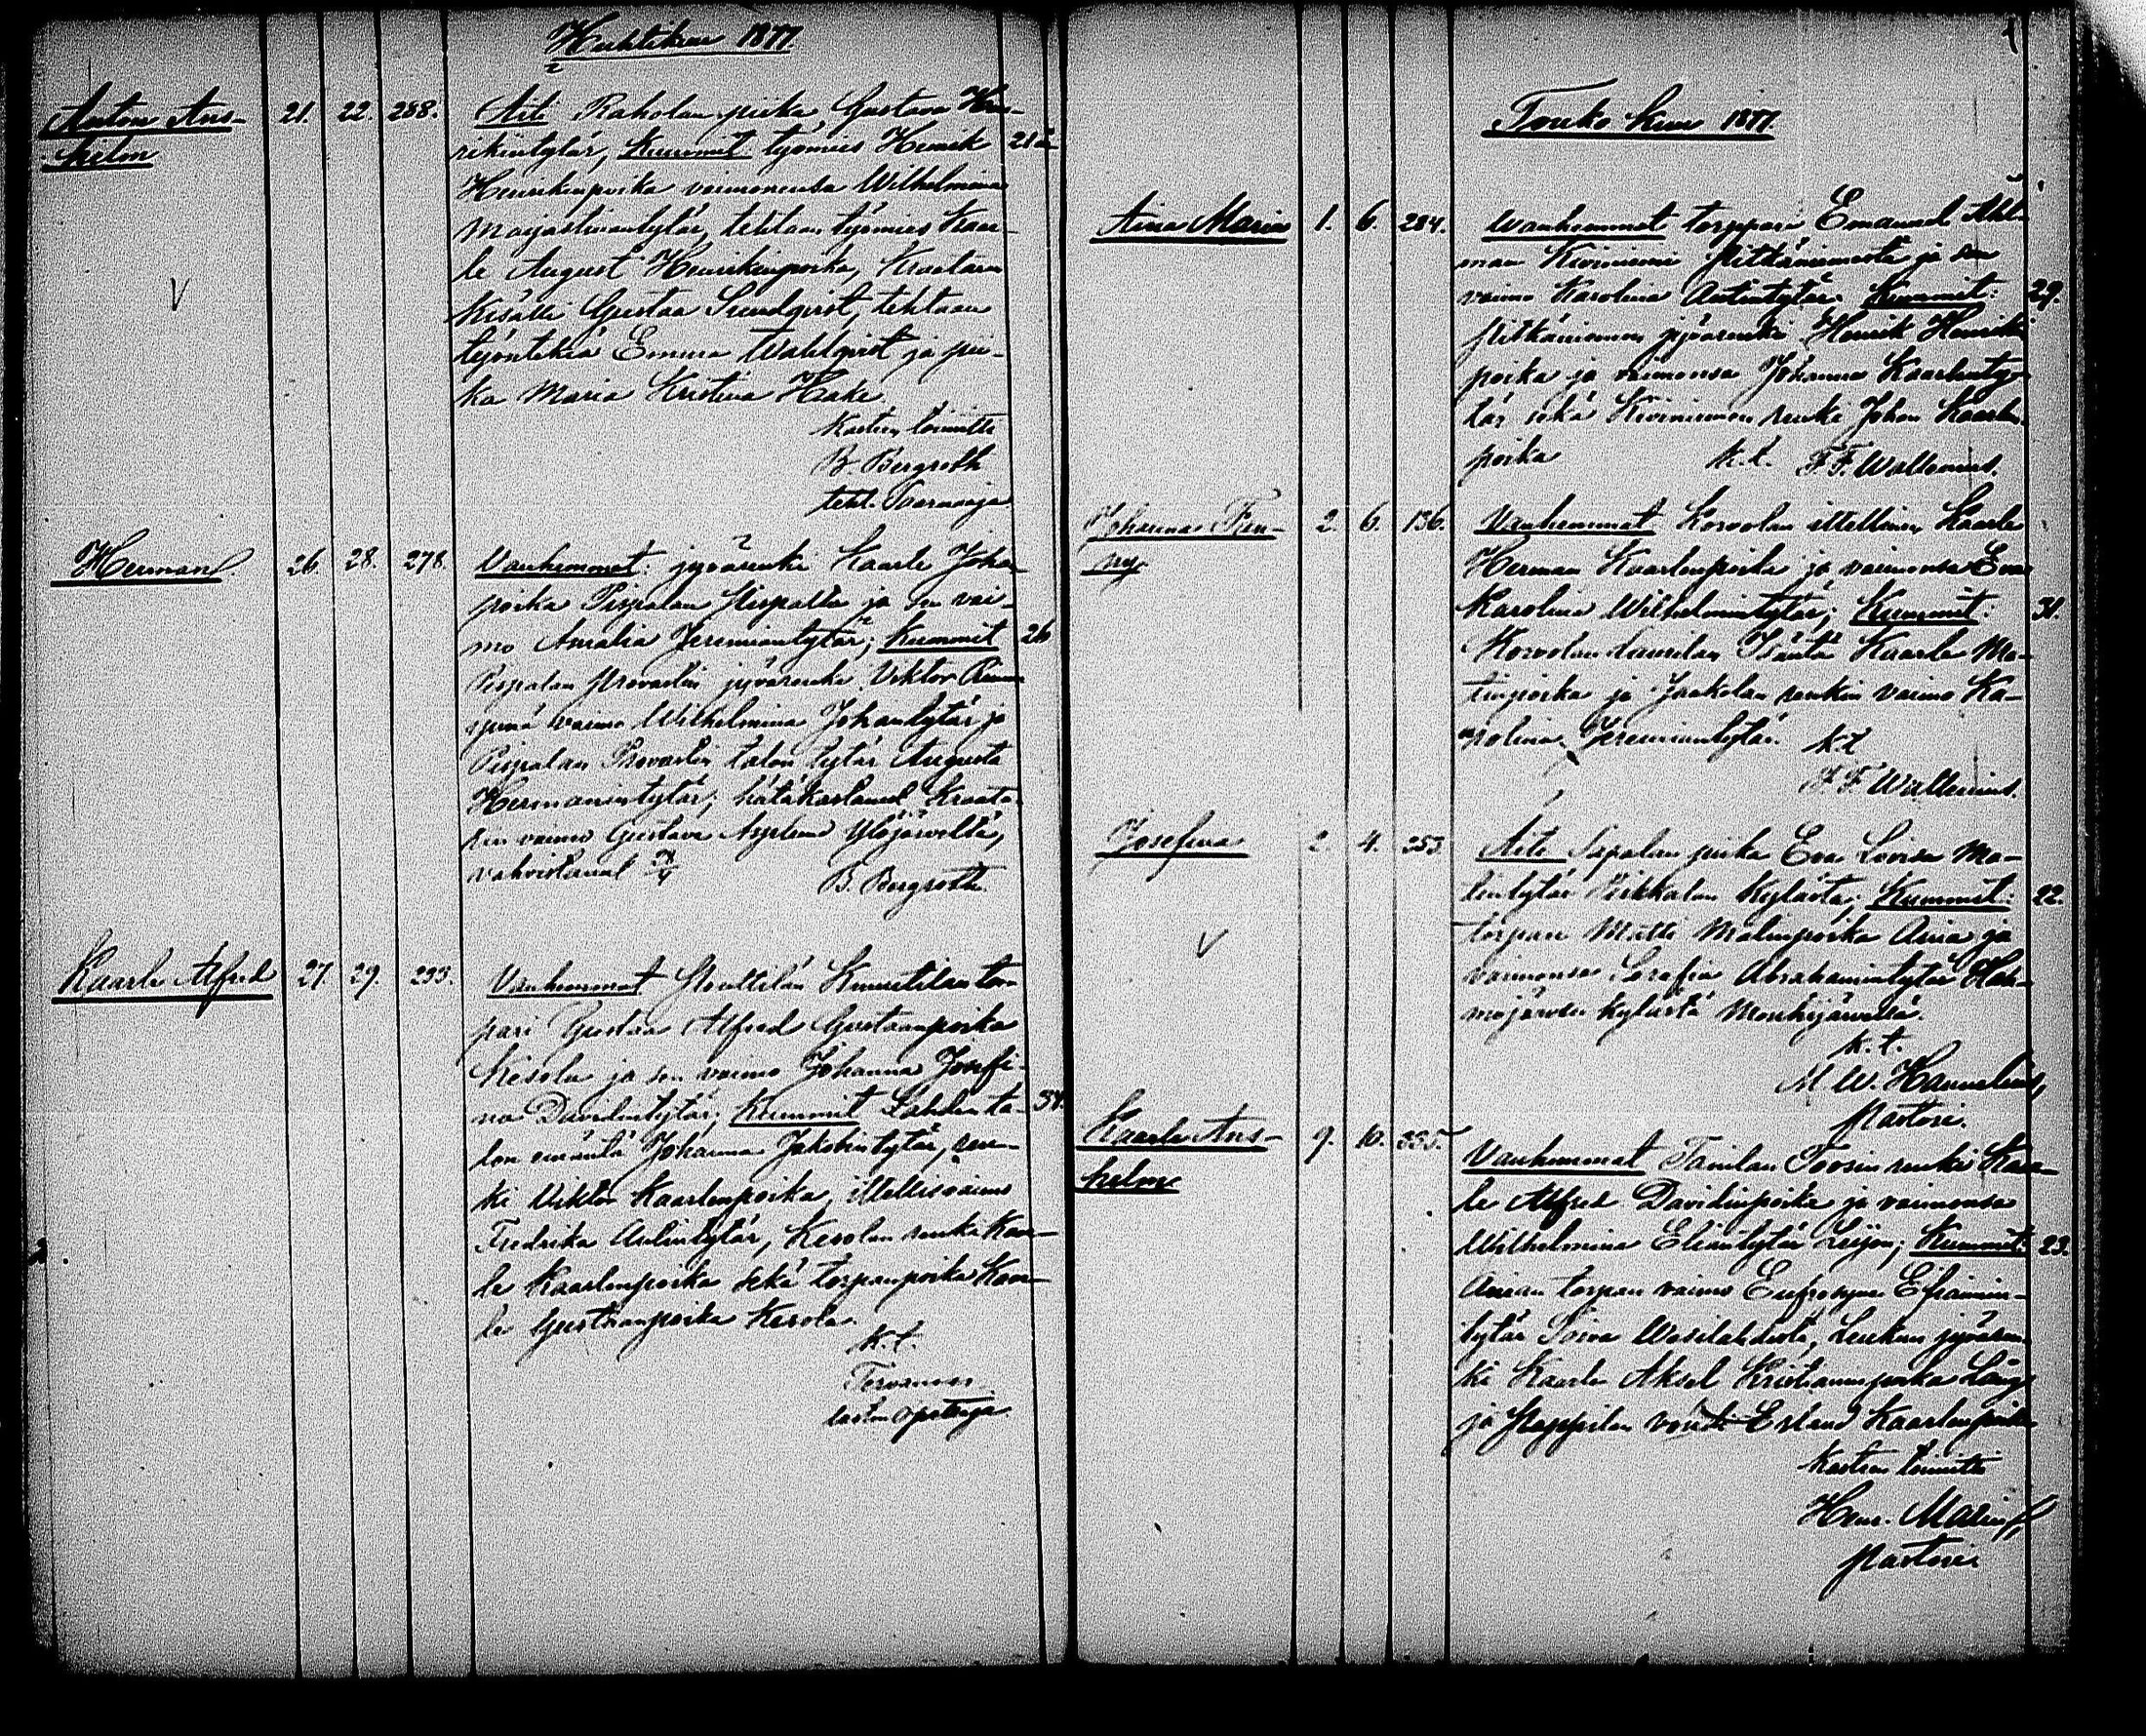 Huhtikuu 1877
Anton Ans- 21. 22. 288. Äiti Raholan piika Gustava Hen-
helm rikintytär, Kummit työmies Henrik 21 ä
Henrikinpoika vaimonensa Wilhelmina
Maijastiinantytär, tehtaan työmies Kaar-
le August Henrikinpoika, Kraatarin
kisälli Gustaa Sundqvist, tehtaan
työntekiä Emma Wahlqvist ja pii-
ka Maria Kristina Hake.
Kasteen toimitti
B. Bergroth
teht. Saarnaaja
Herman 26. 28. 278. Vanhemmat: jyvärenki Kaarle Johan
poika Pispalan Pispalla ja sen vai-
mo Amalia Jeremiantytär; Kummit 26
Pispalan Provastin jyvärenki Viktor
vaimo Wilhelmina Johantytär ja
Pispalan Provastin talon tytär Augusta
Hermanintytär; hätäkastanut Kraata-
rin vaimo Gustava Asplund Ylöjärveltä,
vahvistanut B. Bergroth
Kaarle Alfred 27. 29. 233. Vanhemmat Knuutilan tor-
pari Gustaa Alfred Gustaanpoika
Kesola ja sen vaimo Johanna Josefi-
na Davidintytär; Kummit Lahden ta- 34.
lon emäntä Johanna Jakobintytär, ren-
ki Viktor Kaarlenpoika, itsellisvaimo
Fredrika Antintytär, Kesolan renki Kaar-
le Kaarlenpoika sekä torpanpoika Kaar-
le Gustaanpoika Kesola.
k.t.
Tervanen
lasten opettaja.
Touko kuu 1877
Aina Maria 1. 6. 284. Vanhemmat torppari Emanuel Ahl-
man Kiviniemi Pitkäniemestä ja sen
vaimo Karolina Antintytär. Kummit: 29.
Pitkäniemen jyvärenki Henrik Henrikin
poika ja vaimonsa Johanna Kaarlenty-
tär sekä Kiviniemen renki Johan Kaarlen
poika k.t. F. F. Wallenius.
Johanna Fan- 2. 6. 136. Vanhemmat Korvolan itsellinen Kaarle
ny Herman Kaarlenpoika ja vaimonsa Eva
Karolina Wilhelmintytär; Kummit: 31.
Korvolan Laurilan Isäntä Kaarle Ma-
tinpoika ja Jaakolan renkin vaimo Ka-
rolina Jeremiantytär. k.t
F. F. Wallenius.
Josefina 2. 4. 253. Äiti Sapalan piika Eva Lovisa Ma-
tintytär Pirkkalan Kylästä; Kummit: 22.
torpari Matti Matinpoika Ania ja
vaimonsa Serafia Abrahamintytär Hah-
mojärven kylästä Mouhijärvellä.
k.t.
M W. Hannelius,
Pastori.
Kaarle Ans- 9. 10. 335. Vanhemmat Tanilan Toosin renki Kaa-
helm le Alfred Davidinpoika ja vaimonsa
Wilhelmina Eliantytär Leijon; Kummit: 23.
Anian torpan vaimo Eufrosyna Efraimin-
tytär Toiva Wesilahdesta, Leukun jyvären-
ki Kaarle Aksel Kristianinpoika Lång
ja Peppilan vouti Erland Kaarlenpoika
Kasteen toimitti
Henr. Malin
Pastori